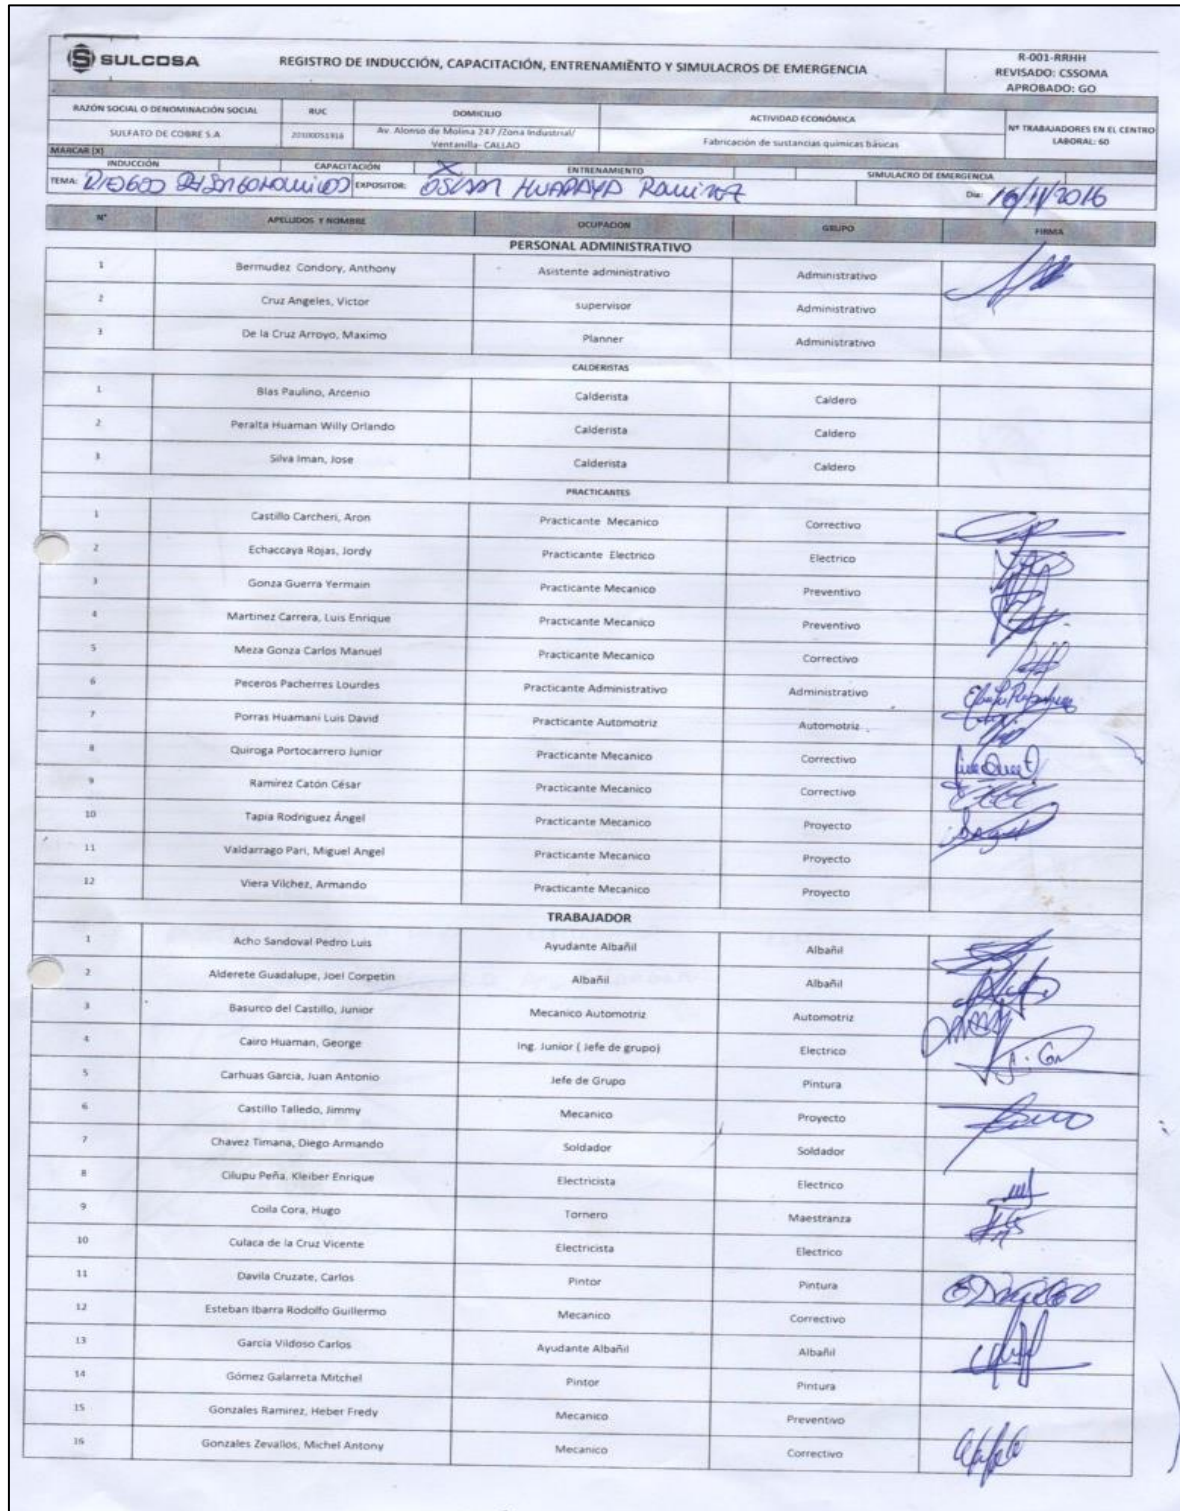 SULCOSA
REGISTRO DE INDUCCIÓN, CAPACITACIÓN, ENTRENAMIENTO Y SIMULACROS DE EMERGENCIA
R-001-RRHH
REVISADO: CSSOMA
APROBADO: GO
RAZÓN SOCIAL O DENOMINACIÓN SOCIAL RUC DOMICILIO ACTIVIDAD ECONÓMICA Nº TRABAJADORES EN EL CENTRO LABORAL: 60
SULFATO DE COBRE S.A Av. Alonso de Molina 247 /Zona Industrial/ Ventanilla- CALLAO Fabricación de sustancias químicas básicas
MARCAR (X)
INDUCCIÓN CAPACITACIÓN X ENTRENAMIENTO SIMULACRO DE EMERGENCIA
TEMA: EXPOSITOR: OSCAR HUAPAYA RAMIREZ Dia: 16/11/2016
N° APELLIDOS Y NOMBRE OCUPACION GRUPO FIRMA
PERSONAL ADMINISTRATIVO
1 Bermudez Condory, Anthony Asistente administrativo Administrativo
2 Cruz Angeles, Victor supervisor Administrativo
3 De la Cruz Arroyo, Maximo Planner Administrativo
CALDERISTAS
1 Blas Paulino, Arcenio Calderista Caldero
2 Peralta Huaman Willy Orlando Calderista Caldero
3 Silva Iman, Jose Calderista Caldero
PRACTICANTES
1 Castillo Carcheri, Aron Practicante Mecanico Correctivo
2 Echaccaya Rojas, Jordy Practicante Electrico Electrico
3 Gonza Guerra Yermain Practicante Mecanico Preventivo
4 Martinez Carrera, Luis Enrique Practicante Mecanico Preventivo
5 Meza Gonza Carlos Manuel Practicante Mecanico Correctivo
6 Peceros Pacherres Lourdes Practicante Administrativo Administrativo
7 Porras Huamani Luis David Practicante Automotriz Automotriz
8 Quiroga Portocarrero Junior Practicante Mecanico Correctivo
9 Ramírez Catón César Practicante Mecanico Correctivo
10 Tapia Rodriguez Ángel Practicante Mecanico Proyecto
11 Valdarrago Pari, Miguel Angel Practicante Mecanico Proyecto
12 Viera Vilchez, Armando Practicante Mecanico Proyecto
TRABAJADOR
1 Acho Sandoval Pedro Luis Ayudante Albañil Albañil
2 Alderete Guadalupe, Joel Corpetin Albañil Albañil
3 Basurco del Castillo, Junior Mecanico Automotriz Automotriz
4 Cairo Huaman, George Ing. Junior ( Jefe de grupo) Electrico
5 Carhuas Garcia, Juan Antonio Jefe de Grupo Pintura
6 Castillo Talledo, Jimmy Mecanico Proyecto
7 Chavez Timana, Diego Armando Soldador Soldador
8 Cilupu Peña, Kleiber Enrique Electricista Electrico
9 Coila Cora, Hugo Tornero Maestranza
10 Culaca de la Cruz Vicente Electricista Electrico
11 Davila Cruzate, Carlos Pintor Pintura
12 Esteban Ibarra Rodolfo Guillermo Mecanico Correctivo
13 García Vildoso Carlos Ayudante Albañil Albañil
14 Gómez Galarreta Mitchel Pintor Pintura
15 Gonzales Ramirez, Heber Fredy Mecanico Preventivo
16 Gonzales Zevallos, Michel Antony Mecanico Correctivo